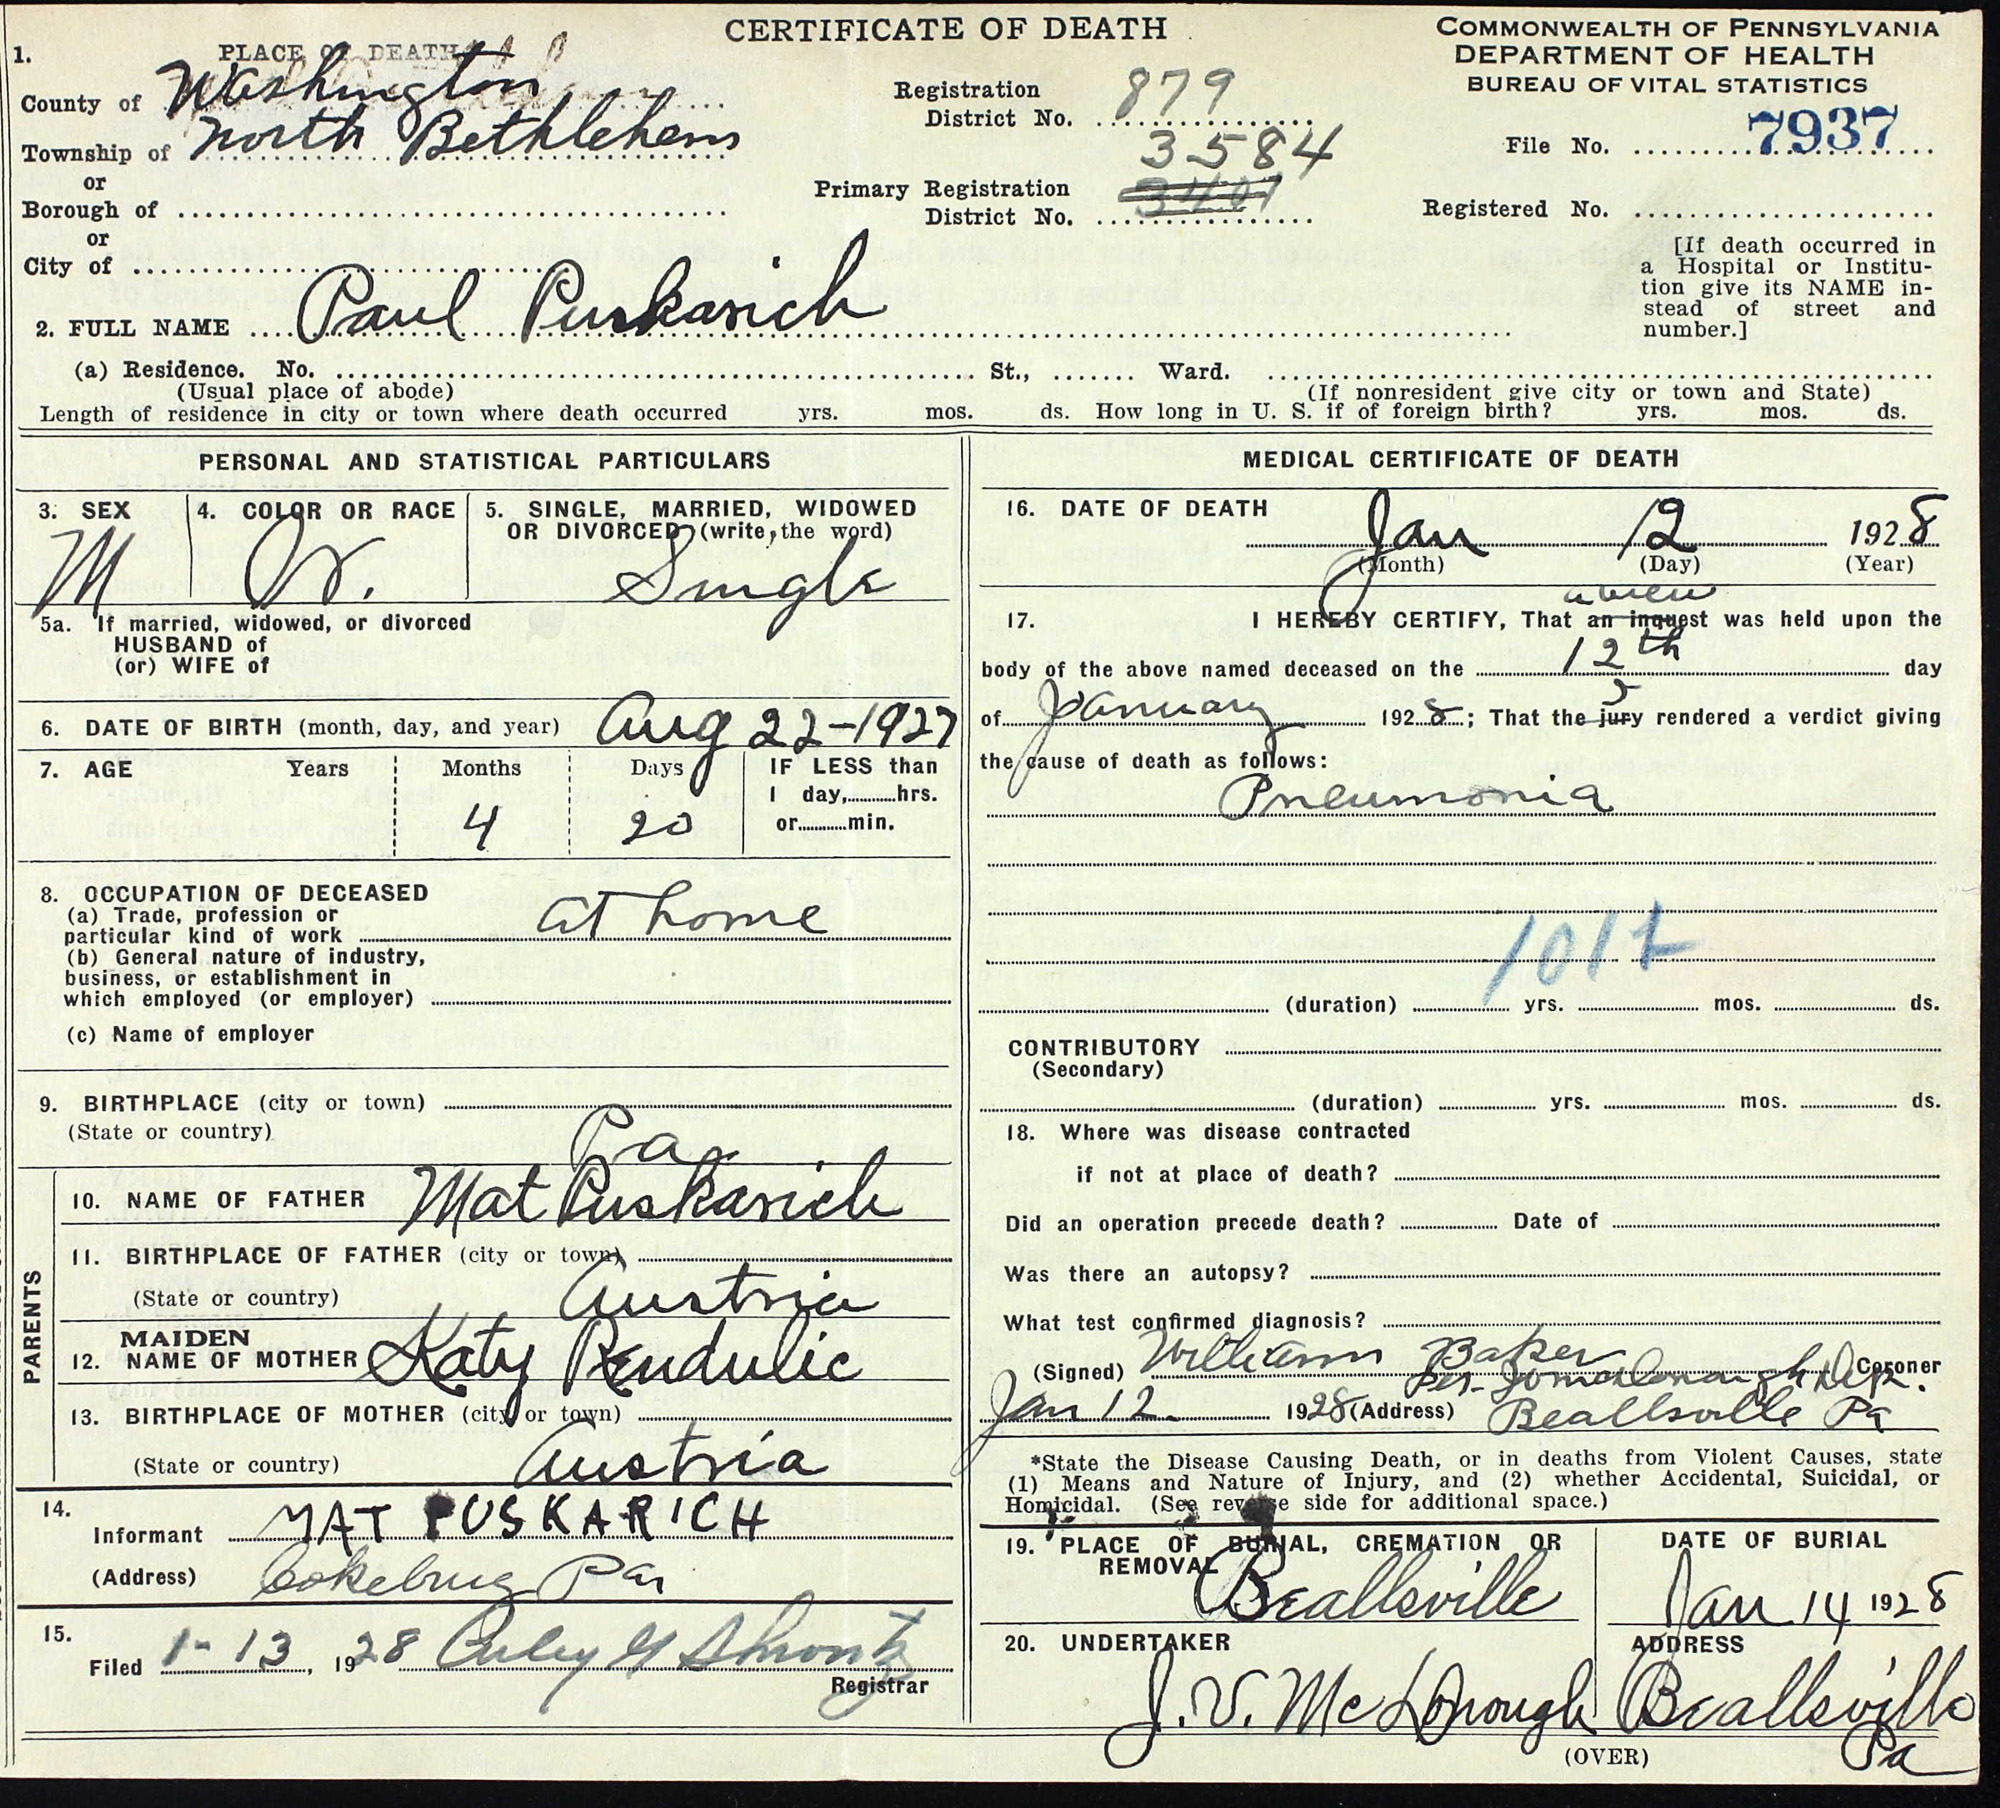 CERTIFICATE OF DEATH
COMMONWEALTH OF PENNSYLVANIA
DEPARTMENT OF HEALTH
BUREAU OF VITAL STATISTICS
1. PLACE OF DEATH
County of Washington
Township of North Bethlehem
or
Borough of
or
City of
Registration District No. 879
3584
Primary Registration District No. 3401
File No. 7937
Registered No.
[If death occurred in
a Hospital or Institu-
tion give its NAME in-
stead of street and
number.]
2. FULL NAME Paul Puskarich
(a) Residence. No. St., Ward.
(Usual place of abode) (If nonresident give city or town and State)
Length of residence in city or town where death occurred yrs. mos. ds. How long in U. S. if of foreign birth? yrs. mos. ds.
PERSONAL AND STATISTICAL PARTICULARS
3. SEX M
4. COLOR OR RACE W.
5. SINGLE, MARRIED, WIDOWED
OR DIVORCED (write the word)
Single
5a. If married, widowed, or divorced
HUSBAND of
(or) WIFE of
6. DATE OF BIRTH (month, day, and year) Aug 22-1927
7. AGE Years Months Days IF LESS than
1 day, hrs.
4 20 or min.
8. OCCUPATION OF DECEASED
(a) Trade, profession or
particular kind of work at home
(b) General nature of industry,
business, or establishment in
which employed (or employer)
(c) Name of employer
9. BIRTHPLACE (city or town)
(State or country) Pa.
PARENTS
10. NAME OF FATHER Mat Puskarich
11. BIRTHPLACE OF FATHER (city or town)
(State or country) Austria
MAIDEN
12. NAME OF MOTHER Katy Rendulic
13. BIRTHPLACE OF MOTHER (city or town)
(State or country) Austria
14.
Informant MAT PUSKARICH
(Address) Cokeburg Pa
15.
Filed 1-13, 1928 Shrontz
Registrar
MEDICAL CERTIFICATE OF DEATH
16. DATE OF DEATH
Jan 12 1928
(Month) (Day) (Year)
a view
17. I HEREBY CERTIFY, That an inquest was held upon the
body of the above named deceased on the 12th day
of January 1928; That the jury rendered a verdict giving
the cause of death as follows:
Pneumonia
101
(duration) yrs. mos. ds.
CONTRIBUTORY
(Secondary)
(duration) yrs. mos. ds.
18. Where was disease contracted
if not at place of death?
Did an operation precede death? Date of
Was there an autopsy?
What test confirmed diagnosis?
(Signed) William Baker Coroner
Per-
Jan 12 1928 (Address) Beallsville Pa
*State the Disease Causing Death, or in deaths from Violent Causes, state
(1) Means and Nature of Injury, and (2) whether Accidental, Suicidal, or
Homicidal. (See reverse side for additional space.)
19. PLACE OF BURIAL, CREMATION OR
REMOVAL
Beallsville
DATE OF BURIAL
Jan 14 1928
20. UNDERTAKER
J. V. McDonough
ADDRESS
Beallsville
Pa
(OVER)